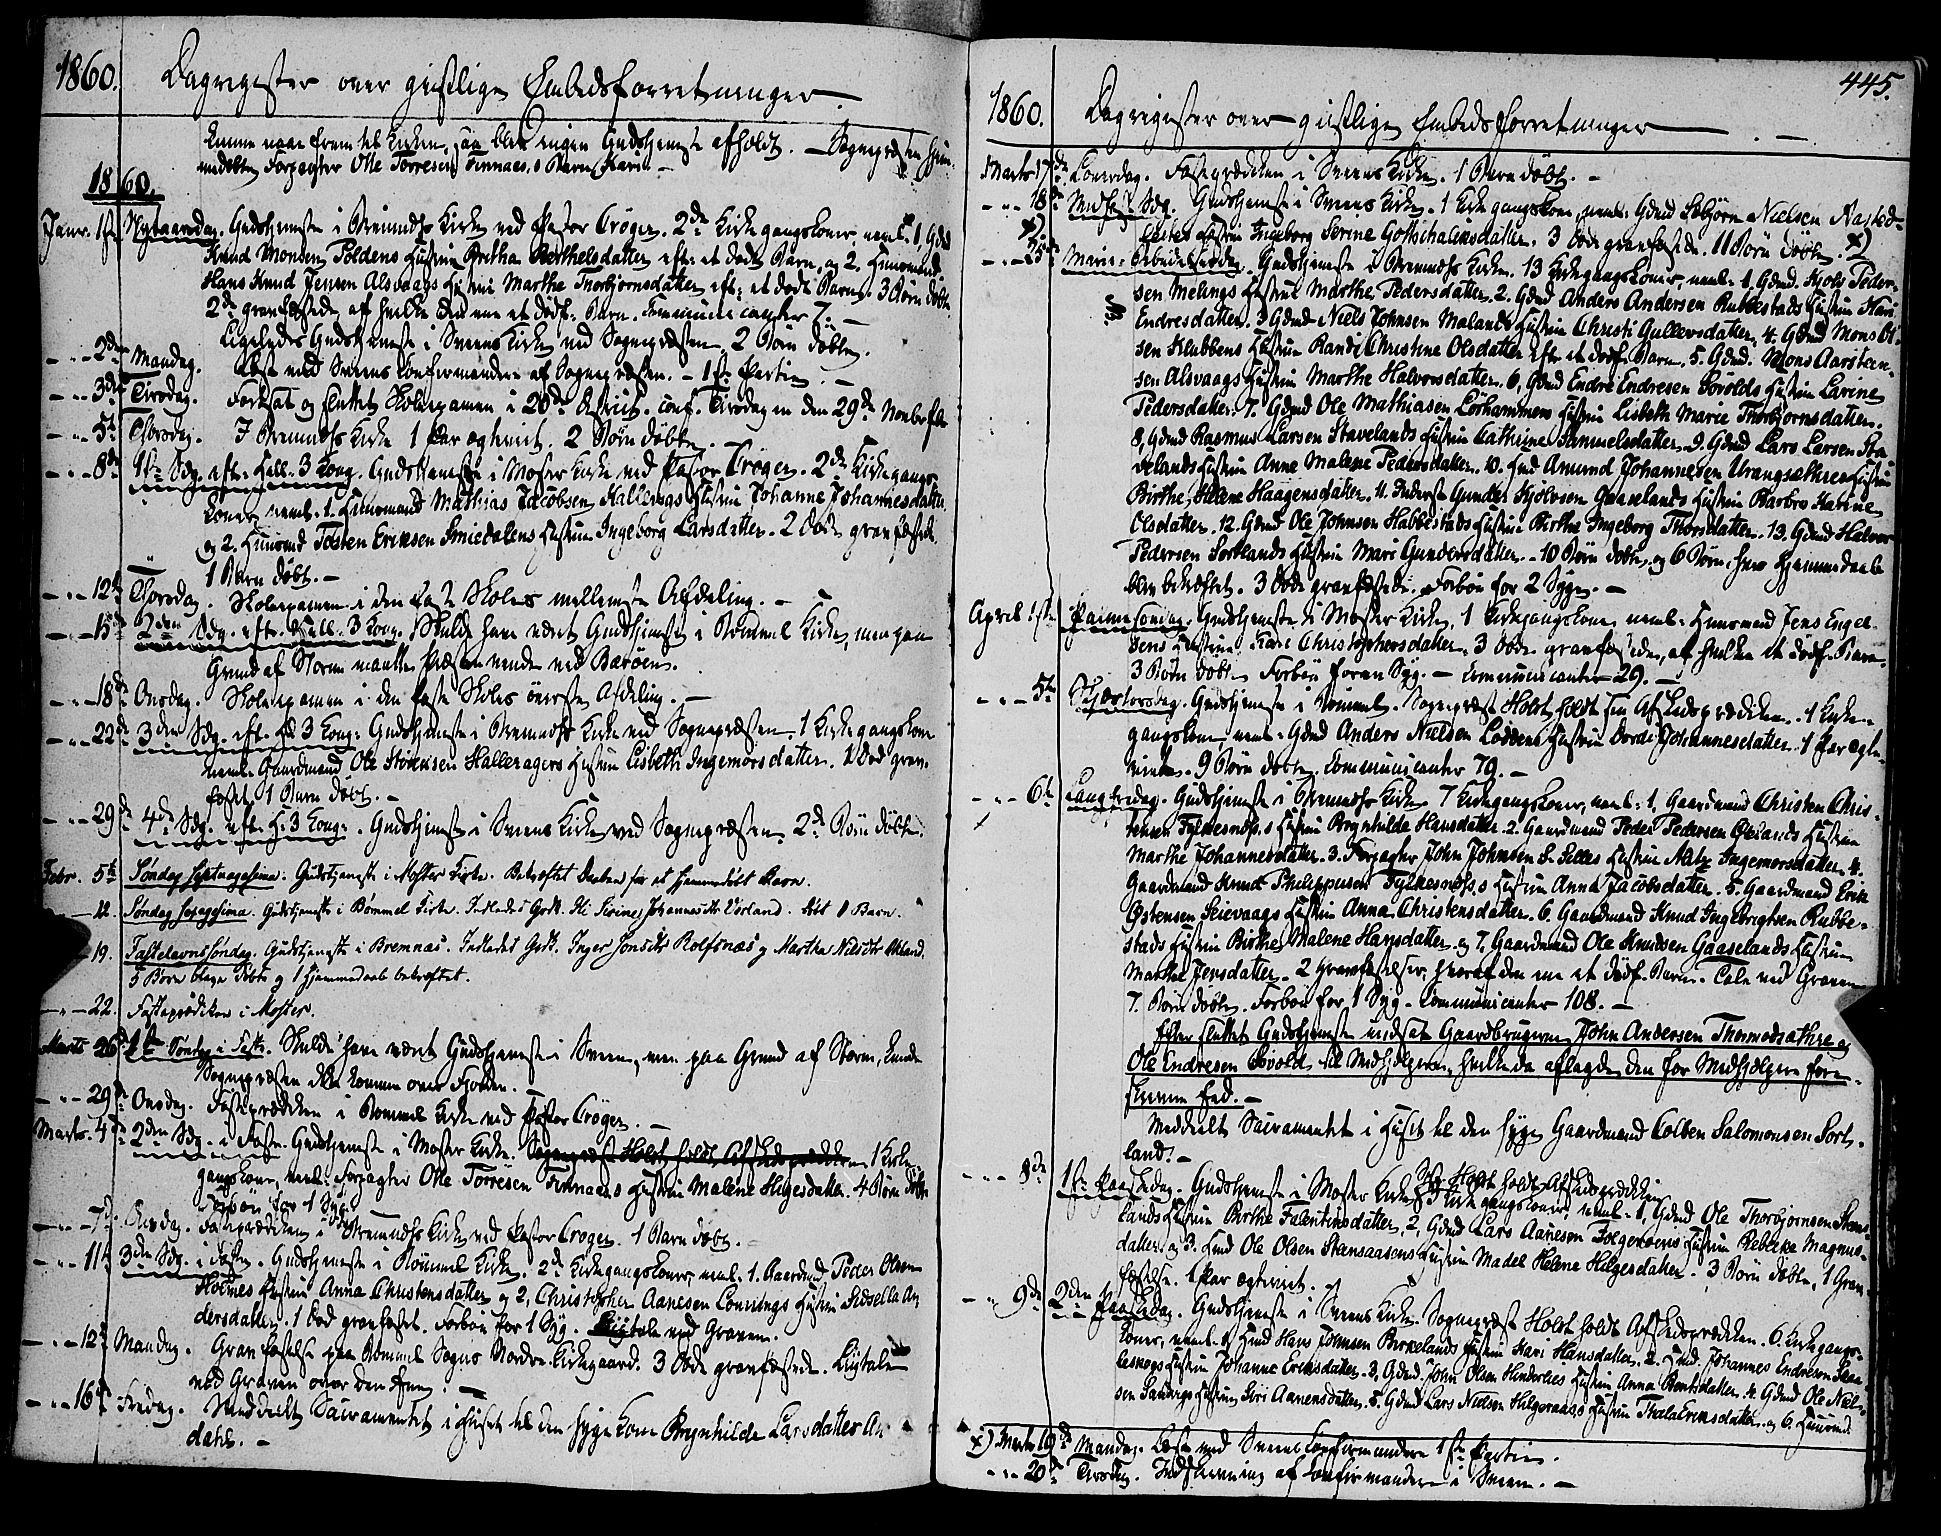 1860. Dagregister over geistlige Embedsforretninger.
kunne naae frem til Kirken, saa blev ingen Gudstjeneste afholdt. — Sognepræsten hjem-
medøbte Forpagter Olle Torresen Finnaas,s Barn Karin —
1860.
Janr. 1ste Nytaarsdag. Gudstjeneste i Bremnæss Kirke ved Pastor Crøger. 2de Kirkegangskoner, neml: 1, Gdmd
Knud Monsen Foldens Hustrue Gretha Berthelsdatter efter et dødt Barn, og 2. Huusmand
Hans Knud Jensen Alsvaags Hustrue Marthe Thorbjørnsdatter eft: et dødt Barn. 3 Børn døbte
2de græsfæstede af hvilke den ene et dødf. Barn. Communicanter 7. —
Ligeledes Gudstjeneste i Sveens Kirke ved Sognepræsten 2 Børn døbte.
— „ — 2den Mandag. Læst med Sveens Confirmander af Sognepræsten. — 1ste Partie. —
— „ — 3die Tirsdag. Fortsat og sluttet Skoleexamen i 20de District. conf. Tirsdagen den 29de Novbr.
— „ — 5te Torsdag. I Bremnæss Kirke 1 Par ægteviet. 2 Børn døbte. —
— „ — 8de 1ste Sdg. efter Hell. 3 Kong. Gudstjeneste i Moster Kirke ved Pastor Crøger. 2de Kirkegangs-
koner, neml. 1. Huusmand Mathias Jacobsen Hallerags Hustrue Johanne Johannesdatter
og 2. Huusmd Tosten Eriksen Smiedalens Hustrue Ingeborg Larsdatter. 2 døde græsfæstede.
1 Barn døbt. —
— „ — 12te Torsdag. Skoleexamen i den faste Skoles mellemste Afdeling. —
— „ — 15de 2den Sdg. eft. Hell. 3 Kong. Skulde have været Gudstjeneste i Bømmel Kirke, men paa
Grund af Storm maatte Præsten vende ved Barøen.
— „ — 18de Onsdag. Skoleexamen i den faste Skoles øverste Afdeling. —
— „ — 22de 3die Sdg. eft. H. 3 Kong: Gudstjeneste i Bremnæss Kirke ved Sognepræsten. 1 Kirkegangskone
neml. Gaardmand Ole Størksen Halleragers Hustrue Lisbeth Ingemorsdatter. 1 Død græs-
fæstet. 1 Barn døbt. —
— „ — 29de 4de Sdg. eft. H: 3 Kong: . Gudstjeneste i Sveens Kirke ved Sognepræsten 2de Børn døbte.
Febr. 5te Søndag Septuagesima. Gudstjeneste i Moster Kirke. Bekræftet Daaben for et hjemmedøbt Barn.
— 12. Søndag Sexagesima. Gudstjeneste i Bømmel Kirke. Døbt 1 Barn.
— 19. Fastelavnssøndag. Gudstjeneste i Bremnæs. Indledet Grdk. Inger Jonsdtr Rolfsnæs og Martha Nilsdtr Økland.
5 Børn bleve døbte og 1 Hjemmedaab bekræftet.
— 22. Fasteprædiken i Moster.
Marts 26de 1ste Søndag i Faste. Skulde have været Gudstjeneste i Sveen, men paa Grund af Storm, kunde
Sognepræsten ikke komme over Fjorden. —
— „ — 29de Onsdag. Fasteprædiken i Bømmel Kirke ved Pastor Crøger. —
Marts. 4de 2den Sdg. i Faste. Gudstjeneste i Moster Kirke. Sognepræst Holst holdt Afskedsprædiken 1 Kirke-
gangskone, neml. Forpagter Olle Torresen Finnaaes Hustrue Malene Helgesdatter. 4 Børn døbte
Forbøn for 1 Syg.
— „ — 7de Onsdag. Fasteprædiken i Bremnæss Kirke ved Pastor Crøger. 1 Barn døbt. —
— „ — 11te 3die Sdg. i Fasten. Gudstjeneste i Bømmel Kirke. 2de Kirkegangskoner, neml. 1. Gaardmd Peder Olsen
Holmes Hustrue Anna Christensdatter og 2, Christopher Aanesen Hustrue Sidsella An-
dersdatter. 1 Død græsfæstet. Forbøn for 1 Syg. Liigtale ved Graven.
— „ — 12te Mandag. Græsfæstelse paa Bømmel Sogns Nordre Kirkegaard. 3 Døde græsfæstede. Liigtale
ved Graven over den Ene. —
— „ — 16de Fredag. Meddeelt Sacramentet i Huset til den syge Kone Brynhilde Larsdatter An-
dahl. —
445.
1860. Dagregister over geistlige Embedsforretninger — . —
Marts 17de Løverdag. Fasteprædiken i Sveens Kirke. 1 Barn døbt. —
— „ — 18de Midfaste Sdg. Gudstjeneste i Sveens Kirke. 1 Kirkegangskone, neml: Gdmd Asbjørn Nielsen Nasted-
Hustrue Ingeborg Serine Gottschalcksdatter. 3 Døde græsfæstede. 11 Børn døbte. x)
— „ — 25de Marie: Bebudelsesdag. Gudstjeneste i Bremnæss Kirke. 13 Kirkegangskoner, neml: 1. Gdmd. Kjols Peder-
sen Melings Hustrue Marthe Pedersdatter. 2. Gdmd Anders Andersen Rubbestads Hustrue Kari
Endresdatter. 3 Gdmd Niels Johnsen Malands Hustrue Christi Gulleivsdatter, 4. Gdmd Mons Ol-
sen Klubbens Hustrue Randi Christine Olsdatter efter et dødf. Barn. 5. Gdmd. Mons Aarsteen-
sen Alsvaags Hustrue Marthe Halvorsdatter. 6, Gdmd Endre Endresen Sovolds Hustrue Larine
Pedersdatter. 7. Gdmd Ole Mathiasen Lorhammers Hustrue Lisbeth Marie Thorbjørnsdatter.
8, Gdmd Rasmus Larsen Stavelands Hustrue Cathrine Samuelsdatter. 9. Gdmd Lars Larsen Sta-
velands Hustrue Anne Malene Pedersdatter. 10. Hmd Amund Johannesen Urangsæthres Hustrue
Birthe Helene Haagensdatter. 11. Inderst Gunder Kjølvsen Gaaselands Hustrue Barbro Karine
Olsdatter. 12. Gdmd Ole Johnsen Habbestads Hustrue Birthe Ingeborg Thorsdatter. 13. Gdmd Halvor
Pedersen Sortlands Hustrue Mari Gundersdatter. — 10 Børn døbte, og 6 Børn, hvis Hjemmedaab
blev bekræftet. 3 døde græsfæstede. Forbøn for 2 Syge. —
April 1ste Palmesøndag. Gudstjeneste i Moster Kirke. 1 Kirkegangskone neml. Huusmand Jens Engel-
sens Hustrue Kari Christophersdatter. 3 Døde græsfæstede, af hvilke et dødf. Barn.
3 Børn døbte Forbøn for en Syg. — Communicanter 29. —
— „ — 5te Skjærtorsdag. Gudstjeneste i Bømmel. Sognepræst Holst holdt sin Afskedsprædiken. 1 Kirke-
gangskone neml. Gdmd Anders Nielsen Loddens Hustrue Dorde Johannesdatter. 1 Par ægte-
viede. 9 Børn døbte. Communicanter 79. —
— „ — 6te Langfredag. Gudstjeneste i Bremnæss Kirke 7 Kirkegangskoner, neml: 1, Gaardmand Christen Chris-
tensen Fylkesnæss,s Hustrue Brynhilde Hansdatter. 2. Gaardmand Peder Pedersen Hustrue
Marthe Johannesdatter. 3. Forpagter John Johnsen Hustrue Ingemorsdatter. 4.
Gaardmand Knud Philippusen Fylkesnæss,s Hustrue Anna Jacobsdatter. 5. Gaardmand Erik
Østensen Seievaags Hustrue Anna Christensdatter. 6. Gaardmand Knud Ingebrigtsen Rubbe-
stads Hustrue Birthe Malene Hansdatter. og 7, Gaardmand Ole Knudsen Gaaselands Hustrue
Marthe Jensdatter. 2 Græsfæstelser, hvoraf den ene et dødf. Barn. Tale ved Graven
7. Børn døbte. Forbøn for 1 Syg. Communicanter 108. —
Efter sluttet Gudstjeneste indsat Gaardbrugerne John Andersen Thormodsæthre og
Ole Endresen Sovold til Medhjelpere, hvilke da aflagde den for Medhjelpere fore-
skrevne Eed. —
Meddeelt Sacramentet i Huset til den syge Gaardmand Colben Salomonsen Sort-
land. —
— „ — 8de 1ste Paaskedag. Gudstjeneste i Moster Kirke. Holst holdt Afskedsprædiken
3 Kirkegangskoner, neml. 1, Gdmd Ole Thorbjørnsen
lands Hustrue Birthe Falentinsdatter, 2, Gdmd Lars Aanesen Folgerøens Hustrue Rebekke Magnus-
datter og 3. Hmd Ole Olsen Stensaasens Hustrue Madel Helene Helgesdatter. 3 Børn døbte, 1 Græs-
fæstelse. 1 Par ægteviet. —
— „ — 9de 2den Paaskedag. Gudstjeneste i Sveens Kirke. Sognepræst Holst holdt Afskedsprædiken. 6 Kirkegangs-
koner, neml. 1 Hmd Hans Johnsen Birkelands Hustrue Kari Hansdatter. 2. Hmd. Johannes Endresen
Hustrue Johanne Eriksdatter. 3, Gdmd. John Olsen Hinderlies Hustrue Anna Bentsdatter. 4. Gdmd Ole Niel-
sen Hustrue Siri Aanensdatter. 5. Gdmd Lars Nielsen Hustrue Thala Eriksdatter. og 6. Huusmd
x) Marts 19de Mandag. Læst med Sveens Confirmander 1ste Partie.
— „ — 20de Tirsdag. Indskrivning af Confirmander i Sveen. —